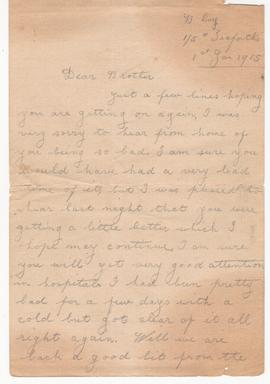 B Coy
1/5th Seaforths
1st Jan 1915
Dear Brother
Just a few lines hoping
you are getting on again, I was
very sorry to hear from home of
you being so bad. I am sure you
would have had a very bad
time of it, but I was pleased to
hear last night that you were
getting a little better which I
hope may continue. I am sure
you will get very good attention
in hospital. I had been pretty
bad for a few days with a
cold but got clear of it all
right again. Well we are
back a good bit from the